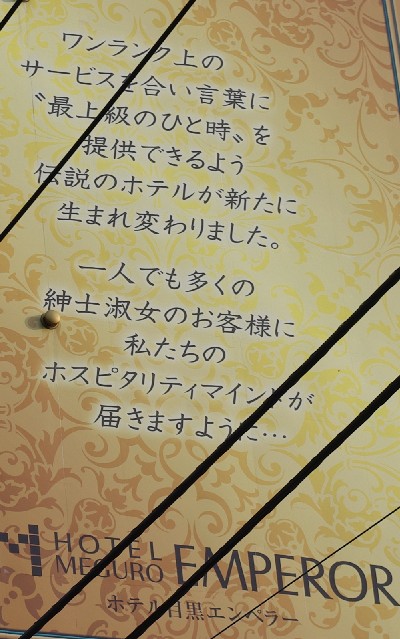 ワンランク上の
サービスを合い言葉に
〝最上級のひと時〟を
提供できるよう
伝説のホテルが新たに
生まれ変わりました。
一人でも多くの
紳士淑女のお客様に
私たちの
ホスピタリティマインドが
届きますように…
HOTEL
MEGURO EMPEROR
ホテル目黒エンペラー